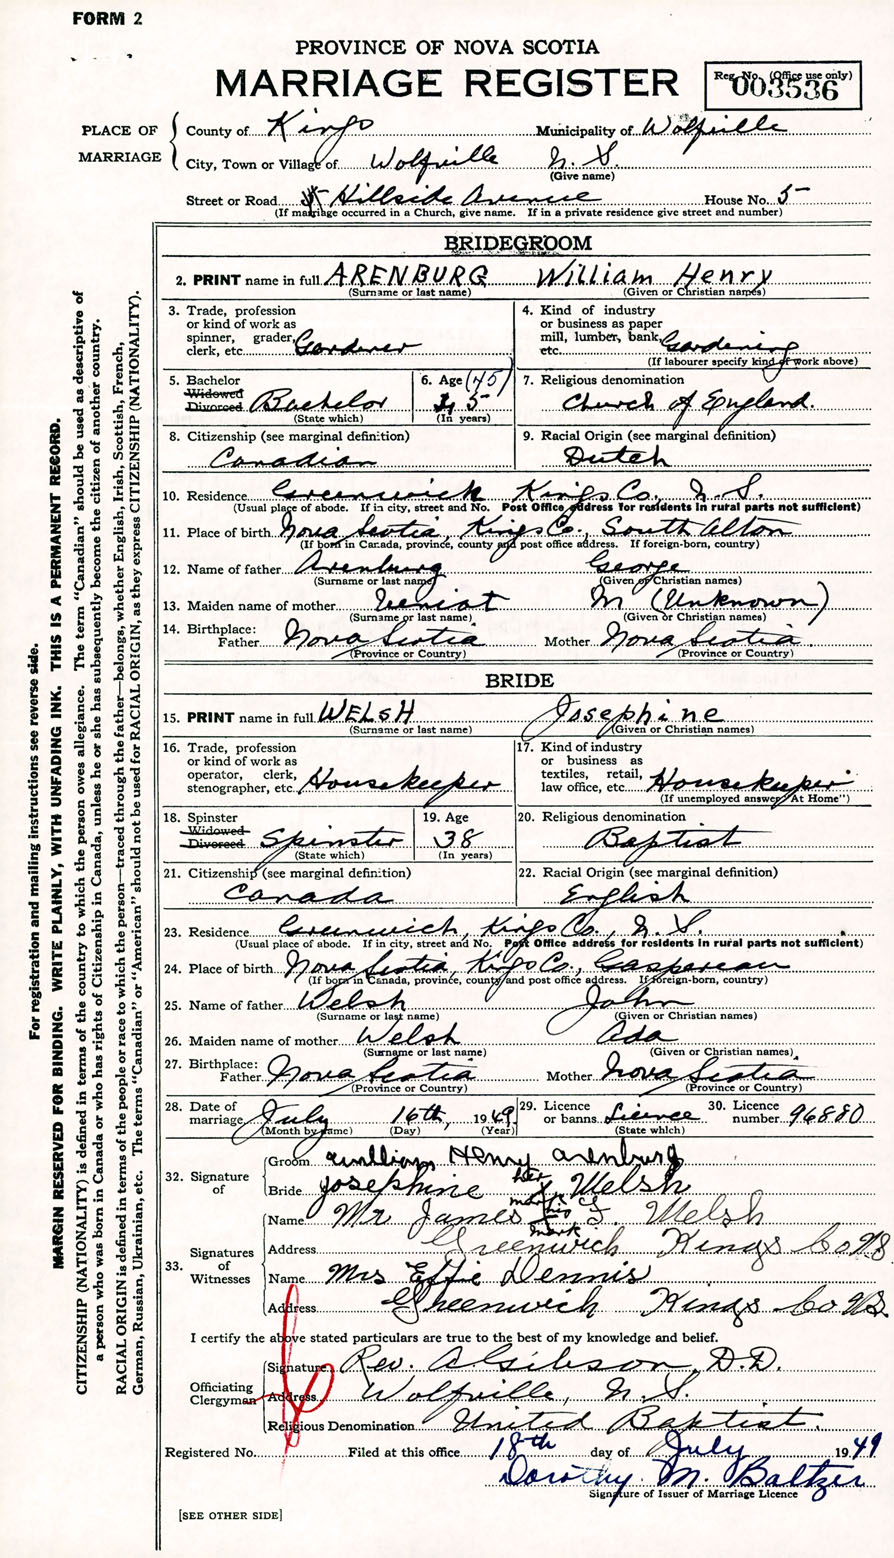 FORM 2
PROVINCE OF NOVA SCOTIA
MARRIAGE REGISTER
Reg. No. (Office use only)
003536
PLACE OF MARRIAGE
County of Kings Municipality of Wolfville
City, Town or Village of Wolfville N. S.
(Give name)
Street or Road 5 Hillside Avenue House No. 5
(If marriage occurred in a Church, give name. If in a private residence give street and number)
BRIDEGROOM
2. PRINT name in full ARENBURG William Henry
(Surname or last name) (Given or Christian names)
3. Trade, profession or kind of work as spinner, grader, clerk, etc. Gardener
4. Kind of industry or business as paper mill, lumber, bank, etc. Gardening
(If labourer specify kind of work above)
5. Bachelor Widowed Divorced Bachelor
(State which)
6. Age (45) 45
(In years)
7. Religious denomination
Church of England.
8. Citizenship (see marginal definition)
Canadian
9. Racial Origin (see marginal definition)
Dutch
10. Residence Greenwich Kings Co., N. S.
(Usual place of abode. If in city, street and No. Post Office address for residents in rural parts not sufficient)
11. Place of birth Nova Scotia, Kings Co., South Alton
(If born in Canada, province, county and post office address. If foreign-born, country)
12. Name of father Arenburg George
(Surname or last name) (Given or Christian names)
13. Maiden name of mother Veniot M (Unknown)
(Surname or last name) (Given or Christian names)
14. Birthplace:
Father Nova Scotia Mother Nova Scotia
(Province or Country) (Province or Country)
BRIDE
15. PRINT name in full WELSH Josephine
(Surname or last name) (Given or Christian names)
16. Trade, profession or kind of work as operator, clerk, stenographer, etc. Housekeeper
17. Kind of industry or business as textiles, retail, law office, etc. Housekeeper
(If unemployed answer "At Home")
18. Spinster Widowed Divorced Spinster
(State which)
19. Age
38
(In years)
20. Religious denomination
Baptist
21. Citizenship (see marginal definition)
Canada
22. Racial Origin (see marginal definition)
English
23. Residence Greenwich, Kings Co., N. S.
(Usual place of abode. If in city, street and No. Post Office address for residents in rural parts not sufficient)
24. Place of birth Nova Scotia, Kigs Co., Gaspereau
(If born in Canada, province, county and post office address. If foreign-born, country)
25. Name of father Welsh John
(Surname or last name) (Given or Christian names)
26. Maiden name of mother Welsh Ada
(Surname or last name) (Given or Christian names)
27. Birthplace:
Father Nova Scotia Mother Nova Scotia
(Province or Country) (Province or Country)
28. Date of marriage July 16th, 1949
(Month by name) (Day) (Year)
29. Licence or banns Licence
(State which)
30. Licence number 96880
32. Signature of
Groom William Henry Arenburg
Bride Josephine her X mark Welsh
33. Signatures of Witnesses
Name Mr James his X mark F. Welsh
Address Greenwich Kings Co NS
Name Mrs Effie Dennis
Address Greenwich Kings Co NS.
I certify the above stated particulars are true to the best of my knowledge and belief.
Officiating Clergyman
Signature Rev. A Gibson, D.D.
Address Wolfville, N. S.
Religious Denomination United Baptist.
Registered No. Filed at this office 18th day of July 1949
Dorothy M. Baltzer
Signature of Issuer of Marriage Licence
[SEE OTHER SIDE]
For registration and mailing instructions see reverse side.
MARGIN RESERVED FOR BINDING. WRITE PLAINLY, WITH UNFADING INK. THIS IS A PERMANENT RECORD.
CITIZENSHIP (NATIONALITY) is defined in terms of the country to which the person owes allegiance. The term "Canadian" should be used as descriptive of
a person who was born in Canada or who has rights of Citizenship in Canada, unless he or she has subsequently become the citizen of another country.
RACIAL ORIGIN is defined in terms of the people or race to which the person—traced through the father—belongs, whether English, Irish, Scottish, French,
German, Russian, Ukrainian, etc. The terms "Canadian" or "American" should not be used for RACIAL ORIGIN, as they express CITIZENSHIP (NATIONALITY).